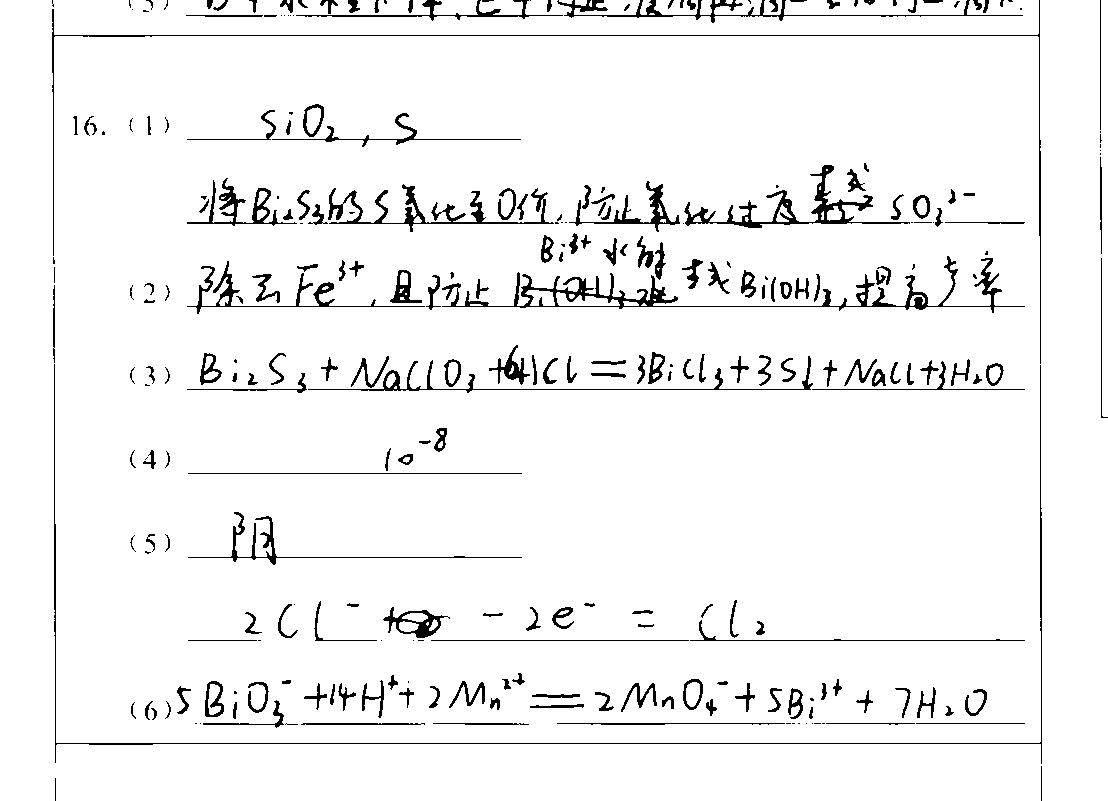 16.（1） SiO₂, S
将Bi₂S₃的S氧化至0价,防止氧化过度 SO₃²⁻
（2） 除去Fe³⁺,且防止 Bi³⁺水解 生成Bi(OH)₃,提高产率
（3） Bi₂S₃+NaClO₃+6HCl=3BiCl₃+3S↓+NaCl+3H₂O
（4） 10⁻⁸
（5） 阴
2Cl⁻ - 2e⁻ = Cl₂
（6） 5BiO₃⁻+14H⁺+2Mn²⁺=2MnO₄⁻+5Bi³⁺+7H₂O